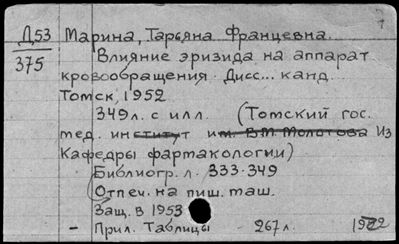 Д53 Марина, Татьяна Францевна.
375 Влияние эризида на аппарат
кровообращения. Дисс... канд.
Томск, 1952
349 л. с илл. (Томский гос.
мед. институт им. В.М. Молотова Из
Кафедры фармакологии)
Библиогр. л. 333-349
(Отпеч. на пиш. маш.
Защ. в 1953
- Прил. Таблицы 267 л.